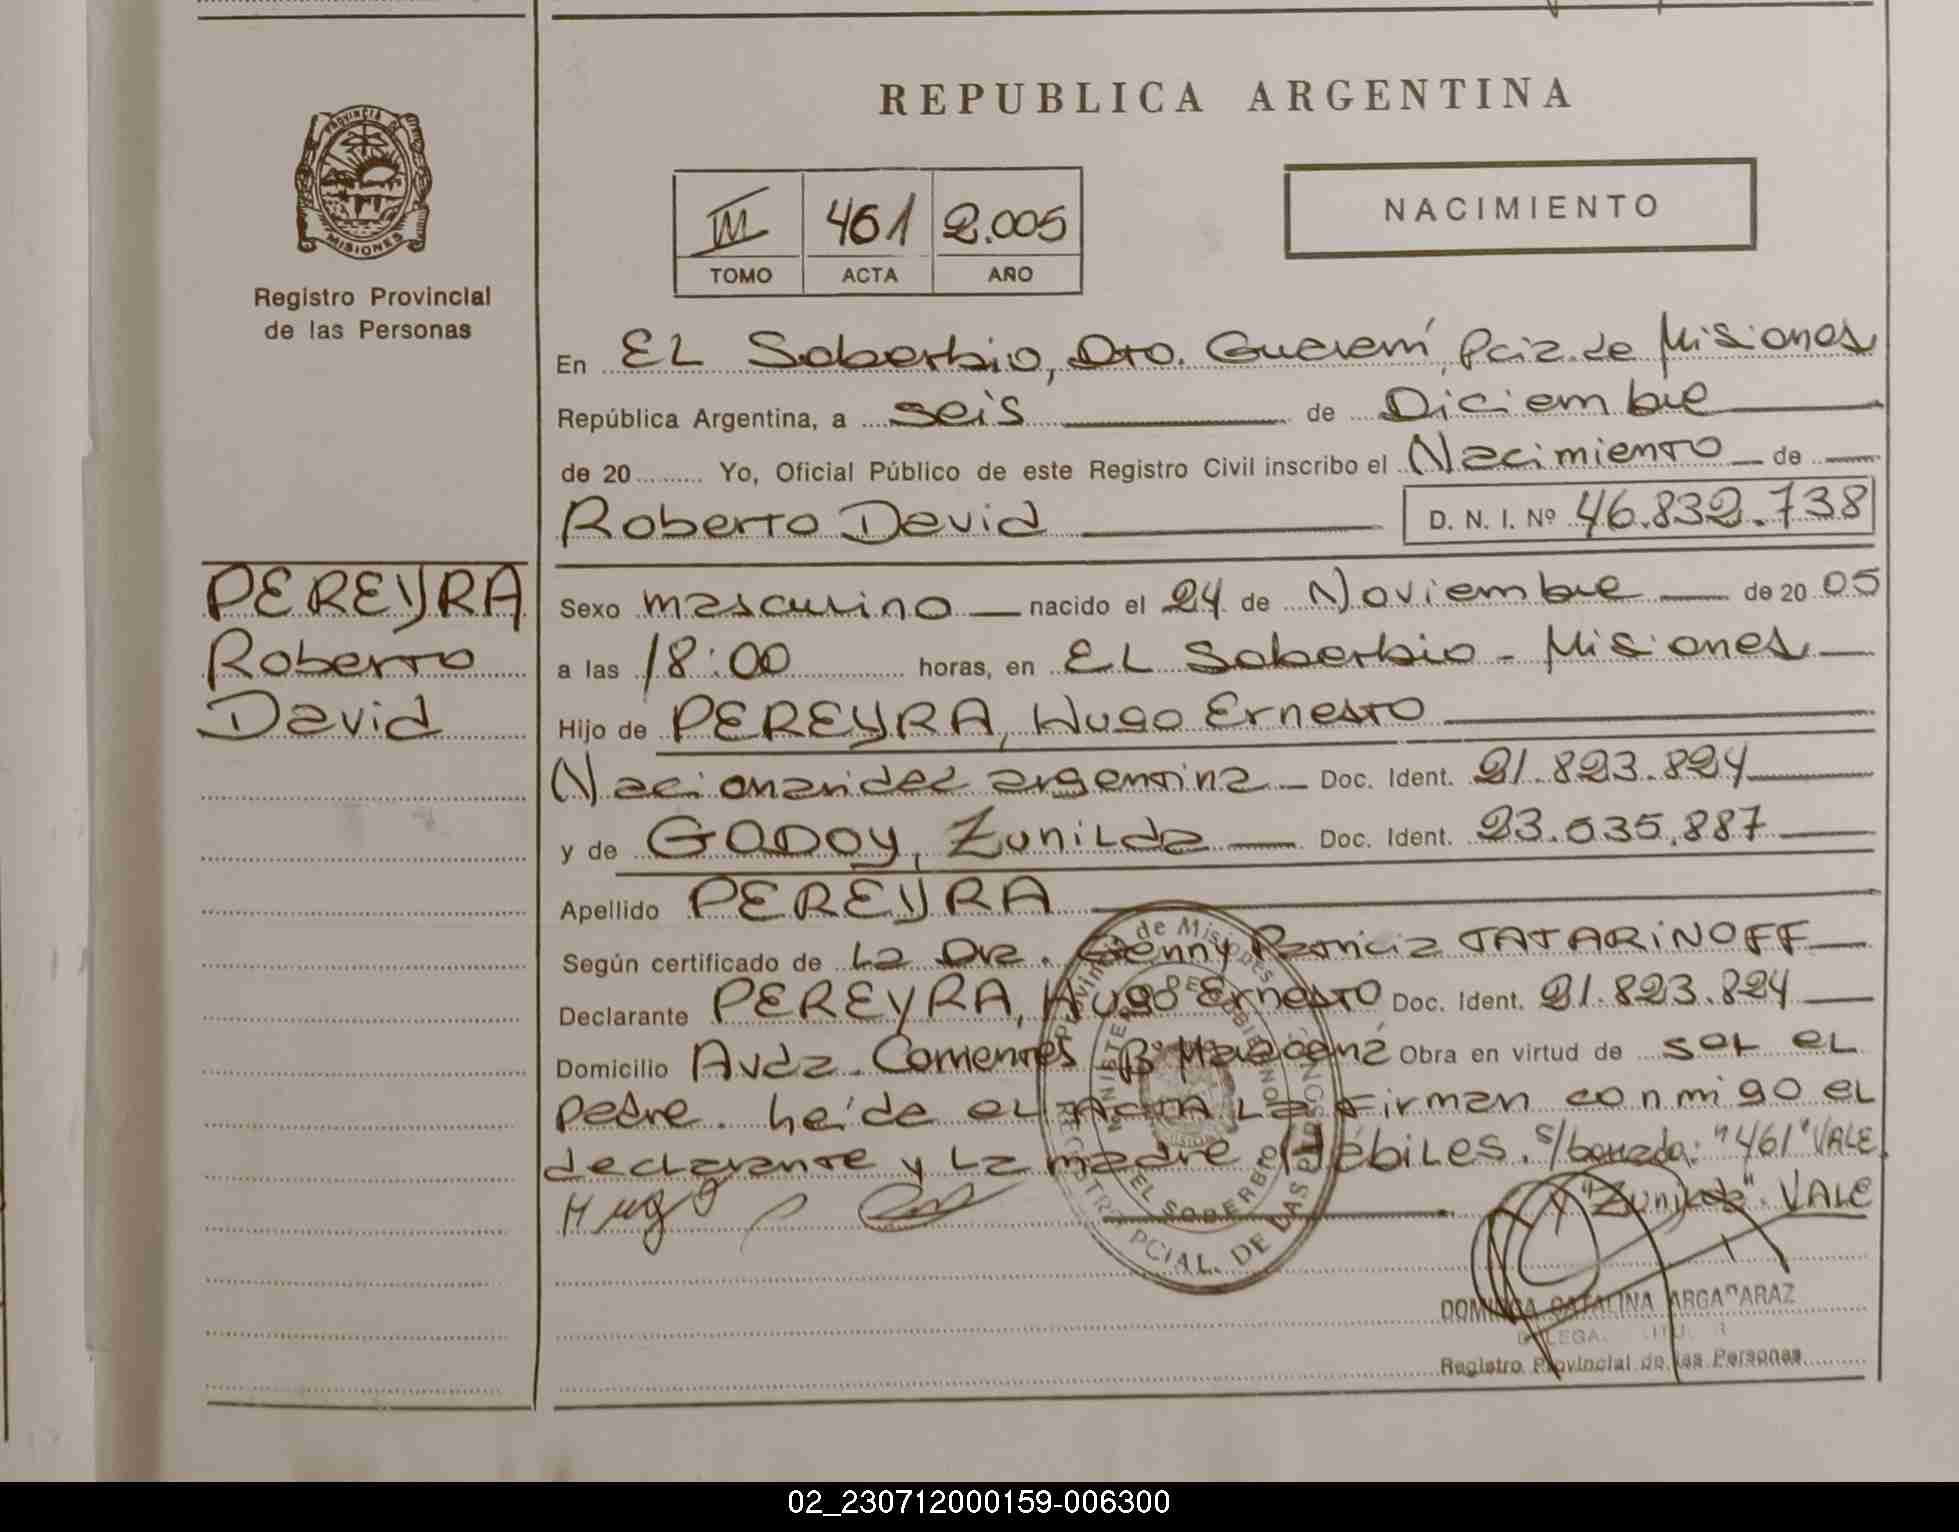 REPUBLICA ARGENTINA
PROVINCIA DE
MISIONES
Registro Provincial
de las Personas
III 461 2.005
TOMO ACTA AÑO
NACIMIENTO
En EL Soberbio, Dto. Guaraní, Pcia. de Misiones
República Argentina, a seis de Diciembre
de 20 Yo, Oficial Público de este Registro Civil inscribo el Nacimiento de
Roberto David D. N. I. Nº 46.832.738
PEREYRA
Roberto
David
Sexo masculino nacido el 24 de Noviembre de 20 05
a las 18:00 horas, en EL Soberbio - Misiones
Hijo de PEREYRA, Hugo Ernesto
Nacionalidad argentina Doc. Ident. 21.823.824
y de GODOY, Zunilda Doc. Ident. 23.035.887
Apellido PEREYRA
Según certificado de La Dra. Genny Patricia TATARINOFF
Declarante PEREYRA, Hugo Ernesto Doc. Ident. 21.823.824
Domicilio Avda. Corrientes Bº Maracaná Obra en virtud de ser el
padre. heída el ACTA La firman conmigo el
declarante y La madre Hábiles. s/borrado: "461" VALE
"Zunilda". VALE
Hugo
Provincia de Misiones
EL SOBERBIO
PCIAL. DE LAS
DOMINGA CATALINA ARGAÑARAZ
Registro Provincial de las Personas
02_230712000159-006300